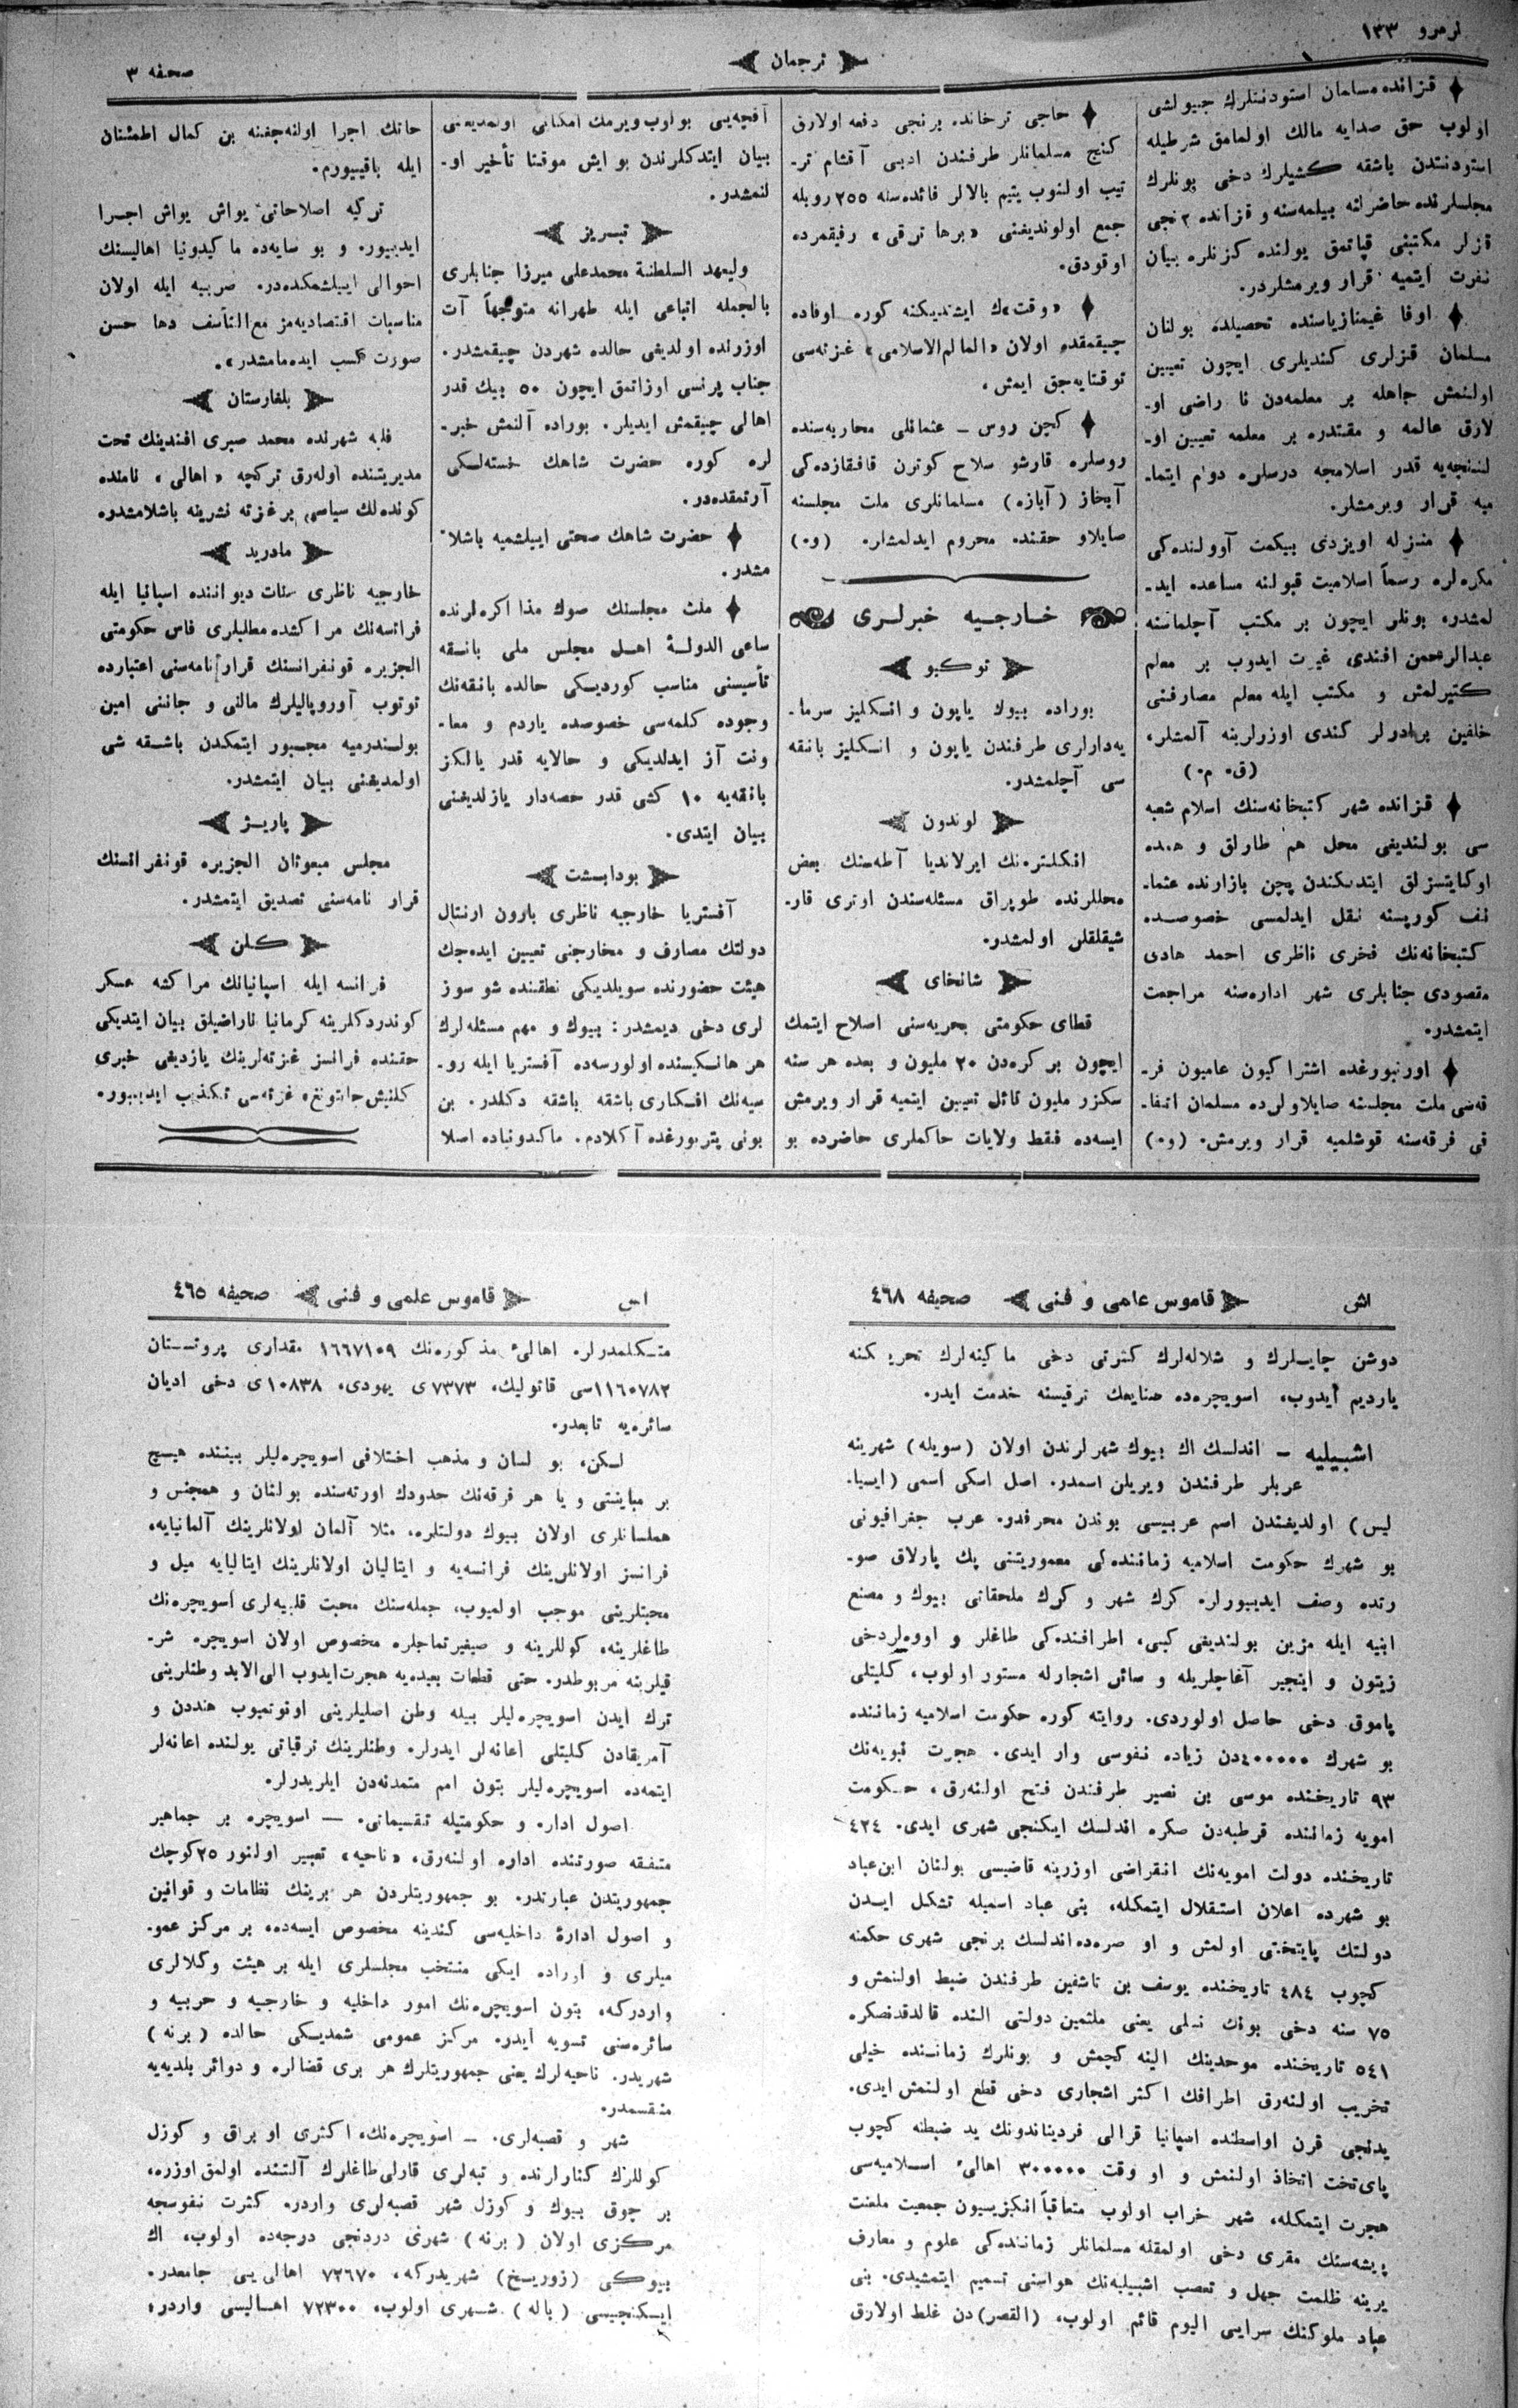 نومرو ١٣٣
ترجمان
صحفه ٣
قزانده مسلمان استودنتلرك جييولشى
اولوب حق صدايه مالك اولمامق شرطيله
استودنتدن باشقه كشيلرك دخى بونلرك
مجلسلرنده حاضرلنه بيلمه‌سنه و قزانده ٢نجى
قزلر مكتبنى قپاتمق يولنده كزنلره بيان
نفرت ايتميه قرار ويرمشلردر.
اوفا غيمنازياسنده تحصيلده بولنان
مسلمان قزلرى كنديلرى ايچون تعيين
اولنمش جاهله بر معلمه‌دن نا راضى او-
لارق عالمه و مقتدره بر معلمه تعيين او-
لننجه‌يه قدر اسلامجه درسلره دوام ايتما-
ميه قرار ويرمشلر.
منزله اويزدى بيكمت آوولنده‌كى
مكره‌لره رسماً اسلاميت قبولنه مساعده ايد-
لمشدر. بونلر ايچون بر مكتب آچلماسنه
عبدالرحمن افندى غيرت ايدوب بر معلم
كتيرلمش و مكتب ايله معلم مصارفنى
خلفين برادرلر كندى اوزرلرينه آلمشلر.
(ق. م.)
قزانده شهر كتبخانه‌سنك اسلام شعبه
سى بولنديغى محل هم طارلق و همده
اوكايتسزلق ايتديكندن پچن بازارنده عثما-
نف كورپسنه نقل ايدلمسى خصوصده
كتبخانه‌نك فخرى ناظرى احمد هادى
مقصودى جنابلرى شهر اداره‌سنه مراجعت
ايتمشدر.
اورنبورغده اشتراكيون عاميون فر-
قه‌سى ملت مجلسنه صايلاولرده مسلمان اتفا-
قى فرقه‌سنه قوشلميه قرار ويرمش. (و.)
حاجى ترخانده برنجى دفعه اولارق
كنج مسلمانلر طرفندن ادبى آقشام تر-
تيب اولنوب يتيم بالالر فائده‌سنه ٢٥٥ روبله
جمع اولونديغنى «برها ترقى» رفيقمزده
اوقودق.
«وقت»ك ايشتديكنه كوره اوفاده
چيقمقده اولان «العالم الاسلامى» غزته‌سى
توقتايه‌جق ايمش.
كچن روس - عثمانلى محاربه‌سنده
روسلره قارشو سلاح كوترن قافقازده‌كى
آبخاز (آبازه) مسلمانلرى ملت مجلسنه
صايلاو حقنده محروم ايدلمشلر. (و.)
خارجيه خبرلرى
توكيو
بوراده بيوك ياپون و انكليز سرما-
يه‌دارلرى طرفندن ياپون و انكليز بانقه
سى آچلمشدر.
لوندون
انكلتره‌نك ايرلانديا آطه‌سنك بعض
محللرنده طوپراق مسئله‌سندن اوترى قار-
شيقلقلر اولمشدر.
شانخاى
قطاى حكومتى بحريه‌سنى اصلاح ايتمك
ايچون بر كره‌دن ٢٠ مليون و بعده هر سنه
سكزر مليون تائل تعيين ايتميه قرار ويرمش
ايسه‌ده فقط ولايات حاكملرى حاضرده بو
آقچه‌يى بولوب ويرمك امكانى اولمديغنى
بيان ايتدكلرندن بو ايش موقتا تأخير او-
لنمشدر.
تبريز
وليعهد السلطنة محمدعلى ميرزا جنابلرى
بالجمله اتباعى ايله طهرانه متوجهاً آت
اوزرنده اولديغى حالده شهردن چيقمشدر.
جناب پرنسى اوزاتمق ايچون ٥٠ بيك قدر
اهالى چيقمش ايديلر. بوراده آلنمش خبر-
لره كوره حضرت شاهك خسته‌لكى
آرتمقده‌در.
حضرت شاهك صحتى اييلشميه باشلا-
مشدر.
ملت مجلسنك صوك مذاكره‌لرنده
ساعى الدولة اهل مجلس ملى بانقه
تأسيسنى مناسب كورديكى حالده بانقه‌نك
وجوده كلمه‌سى خصوصده ياردم و معا-
ونت آز ايدلديكى و حالايه قدر يالكز
بانقه‌يه ١٠ كشى قدر حصه‌دار يازلديغنى
بيان ايتدى.
بودابشت
آفستريا خارجيه ناظرى بارون ارنتال
دولتك مصارف و مخارجنى تعيين ايده‌جك
هيئت حضورنده سويلديكى نطقنده شو سوز
لرى دخى ديمشدر: بيوك و مهم مسئله‌لرك
هر هانكيسنده اولورسه‌ده آفستريا ايله رو-
سيه‌نك افكارى باشقه باشقه دكلدر. بن
بونى پتربورغده آكلادم. ماكدونياده اصلا
حاتك اجرا اولنه‌جغنه بن كمال اطمئنان
ايله باقييورم.
تركيه اصلاحاتى يواش يواش اجرا
ايدييور. و بو سايه‌ده ماكيدونيا اهاليسنك
احوالى اييلشمكده‌در. صربيه ايله اولان
مناسبات اقتصاديه‌مز مع التأسف دها حسن
صورت كسب ايده‌مامشدر».
بلغارستان
فلبه شهرنده محمد صبرى افندينك تحت
مديريتنده اوله‌رق تركچه «اهالى» نامنده
كونده‌لك سياسى بر غزته نشرينه باشلامشدر.
مادريد
خارجيه ناظرى سنات ديواننده اسپانيا ايله
فرانسه‌نك مراكشده مطلبلرى فاس حكومتى
الجزيره قونفرانسنك قرارنامه‌سنى اعتبارده
توتوب آوروپاليلرك مالنى و جاننى امين
بولندرميه مجبور ايتمكدن باشقه شى
اولمديغنى بيان ايتمشدر.
پاريژ
مجلس مبعوثان الجزيره قونفرانسنك
قرار نامه‌سنى تصديق ايتمشدر.
كلن
فرانسه ايله اسپانيانك مراكشه عسكر
كوندردكلرينه كرمانيا ناراضيلق بيان ايتديكى
حقنده فرانسز غزته‌لرينك يازديغى خبرى
غزته‌سى تكذيب ايدييور.
اش
قاموس علمى و فنى
صحيفه ٤٦٨
دوشن چايلرك و شلاله‌لرك كثرتى دخى ماكينه‌لرك تحريكنه
يارديم ايدوب، اسويچره‌ده صنايعك ترقيسنه خدمت ايدر.
اشبيليه - اندلسك اك بيوك شهرلرندن اولان (سويله) شهرينه
عربلر طرفندن ويريلن اسمدر. اصل اسكى اسمى (ايسپا-
ليس) اولديغندن اسم عربيسى بوندن محرفدر. عرب جغرافيونى
بو شهرك حكومت اسلاميه زماننده‌كى معموريتنى پك پارلاق صو-
رتده وصف ايدييورلر. كرك شهر و كرك ملحقاتى بيوك و مصنع
ابنيه ايله مزين بولنديغى كبى، اطرافنده‌كى طاغلر و اووه‌لر دخى
زيتون و اينجير آغاچلريله و سائر اشجارله مستور اولوب، كليتلى
پاموق دخى حاصل اولوردى. روايته كوره حكومت اسلاميه زماننده
بو شهرك ٤٠٠٠٠٠دن زياده نفوسى وار ايدى. هجرت نبويه‌نك
٩٣ تاريخنده موسى بن نصير طرفندن فتح اولنه‌رق، حكومت
امويه زماننده قرطبه‌دن صكره اندلسك ايكنجى شهرى ايدى. ٤٢٤
تاريخنده دولت امويه‌نك انقراضى اوزرينه قاضيسى بولنان ابن عباد
بو شهرده اعلان استقلال ايتمكله، بنى عباد اسميله تشكل ايدن
دولتك پايتختى اولمش و او صره‌ده اندلسك برنجى شهرى حكمنه
كچوب ٤٨٤ تاريخنده يوسف بن تاشفين طرفندن ضبط اولنمش و
٧٥ سنه دخى بونك نسلى يعنى ملثمين دولتى النده قالدقدنصكره
٥٤١ تاريخنده موحدينك الينه كچمش و بونلرك زماننده خيلى
تخريب اولنه‌رق اطرافك اكثر اشجارى دخى قطع اولنمش ايدى.
يدنجى قرن اواسطنده اسپانيا قرالى فرديناندونك يد ضبطنه كچوب
پاى‌تخت اتخاذ اولنمش و او وقت ٣٠٠٠٠٠ اهالئ اسلاميه‌سى
هجرت ايتمكله، شهر خراب اولوب متعاقباً انكزيسيون جمعيت ملعنت
پيشه‌سنك مقرى دخى اولمقله مسلمانلر زماننده‌كى علوم و معارف
يرينه ظلمت جهل و تعصب اشبيليه‌نك هواسنى تسميم ايتمشيدى. بنى
عباد ملوكنك سرايى اليوم قائم اولوب، (القصر)دن غلط اولارق
اس
قاموس علمى و فنى
صحيفه ٤٦٥
متكلمدرلر. اهالئ مذكوره‌نك ١٦٦٧١٠٩ مقدارى پروتستان
١١٦٠٧٨٢سى قاتوليك، ٧٣٧٣ى يهودى، ١٠٨٣٨ى دخى اديان
سائره‌يه تابعدر.
لكن، بو لسان و مذهب اختلافى اسويچره‌ليلر بيننده هيچ
بر مباينتى و يا هر فرقه‌نك حدودك اورته‌سنده بولنان و همجنس و
هملسانلرى اولان بيوك دولتلره، مثلا آلمان اولانلرينك آلمانيايه،
فرانسز اولانلرينك فرانسه‌يه و ايتاليان اولانلرينك ايتاليايه ميل و
محبتلرينى موجب اولميوب، جمله‌سنك محبت قلبيه‌لرى اسويچره‌نك
طاغلرينه، كوللرينه و صيغيرتماجلره مخصوص اولان اسويچره شر-
قيلرينه مربوطدر. حتى قطعات بعيده‌يه هجرت ايدوب الى الابد وطنلرينى
ترك ايدن اسويچره‌ليلر بيله وطن اصليلرينى اونوتميوب هنددن و
آمريقادن كليتلى اعانه‌لر ايدرلر. وطنلرينك ترقياتى يولنده اعانه‌لر
ايتمه‌ده اسويچره‌ليلر بتون امم متمدنه‌دن ايلريدرلر.
اصول اداره و حكومتيله تقسيماتى. — اسويچره بر جماهير
متفقه صورتنده اداره اولنه‌رق، «ناحيه» تعبير اولنور ٢٥ كوچك
جمهوريتدن عبارتدر. بو جمهوريتلردن هر برينك نظامات و قوانين
و اصول ادارۀ داخليه‌سى كندينه مخصوص ايسه‌ده، بر مركز عمو-
ميلرى و اوراده ايكى منتخب مجلسلرى ايله بر هيئت وكلالرى
واردركه، بتون اسويچره‌نك امور داخليه و خارجيه و حربيه و
سائره‌سنى تسويه ايدر. مركز عمومى شمديكى حالده (برنه)
شهريدر. ناحيه‌لرك يعنى جمهوريتلرك هر برى قضالره و دوائر بلديه‌يه
منقسمدر.
شهر و قصبه‌لرى. - اسويچره‌نك، اكثرى اوپراق و كوزل
كوللرك كنارلرنده و تپه‌لرى قارلى طاغلرك آلتنده اولمق اوزره،
بر چوق بيوك و كوزل شهر قصبه‌لرى واردر. كثرت نفوسجه
مركزى اولان (برنه) شهرى دردنجى درجه‌ده اولوب، اك
بيوكى (زوريخ) شهريدركه، ٧٢٦٧٠ اهالى‌يى جامعدر.
ايكنجيسى (باله) شهرى اولوب، ٧٢٣٠٠ اهاليسى واردر،